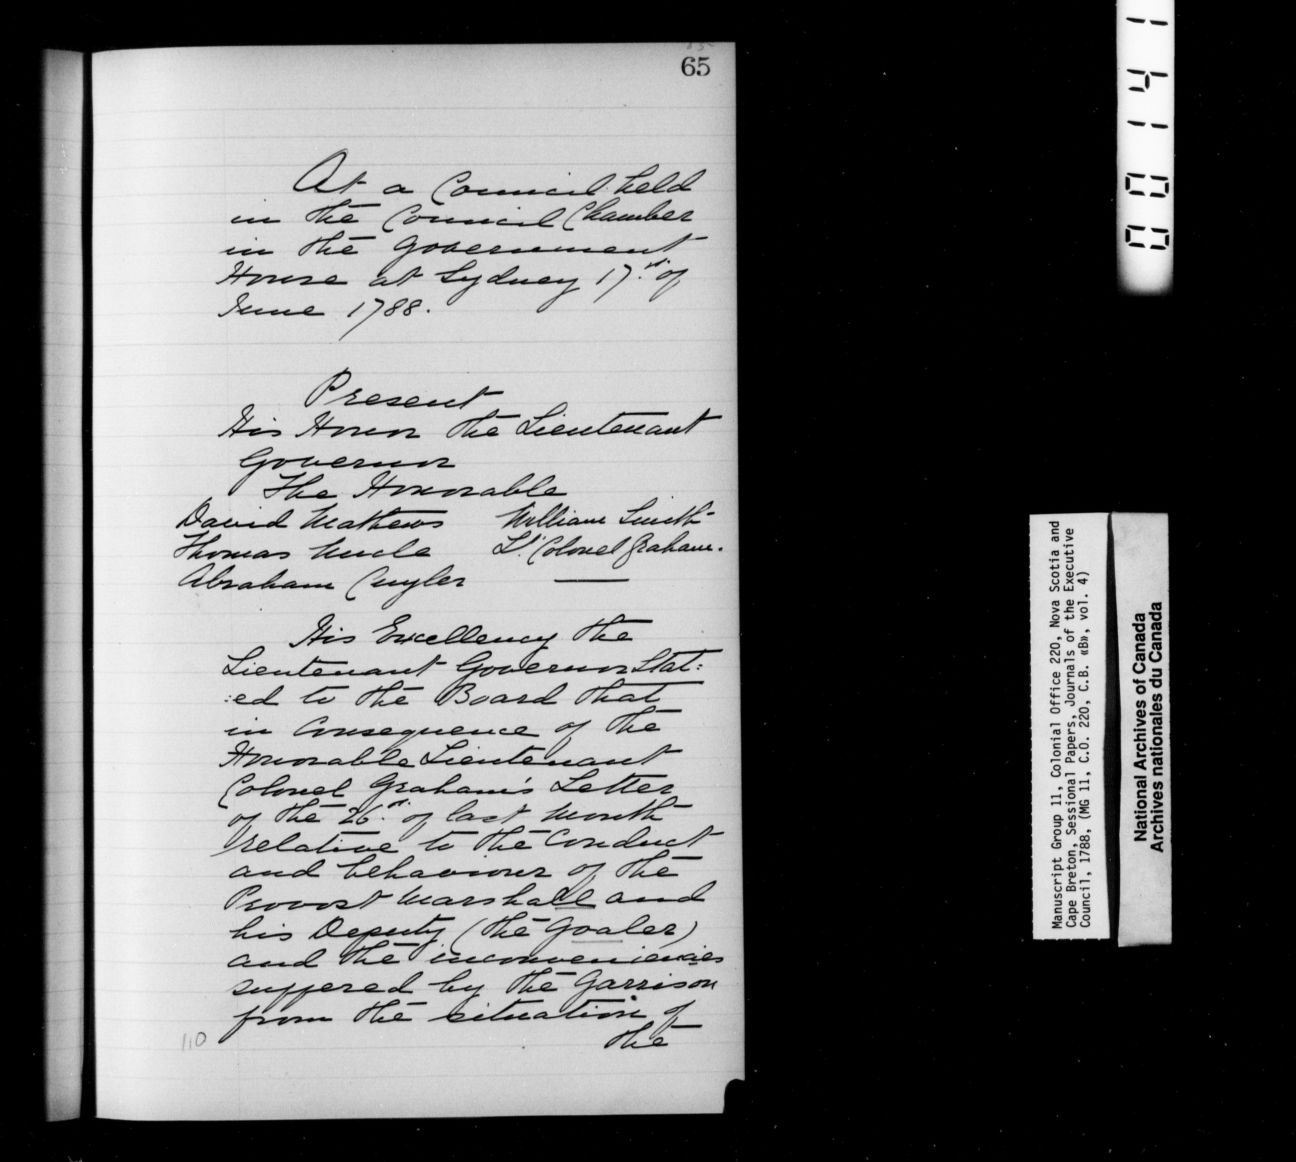 65
At a Council held
in the Council Chamber
in the Government
House at Sydney 17th of
June 1788.
Present
His Honor the Lieutenant
Governor
The Honorable
David Mathews William Smith
Thomas Uncle Lt. Colonel Graham.
Abraham Cuyler
His Excellency the
Lieutenant Governor Stat:
:ed to the Board that
in consequence of the
Honorable Lieutenant
Colonel Graham's Letter
of the 26th of last Month
relative to the Conduct
and behaviour of the
Provost Marshall and
his Deputy (the Goaler)
and the inconveniencies
suffered by the Garrison
from the situation of
the
110
00141
Manuscript Group 11, Colonial Office 220, Nova Scotia and
Cape Breton, Sessional Papers, Journals of the Executive
Council, 1788, (MG 11, C.O. 220, C.B. «B», vol. 4)
National Archives of Canada
Archives nationales du Canada